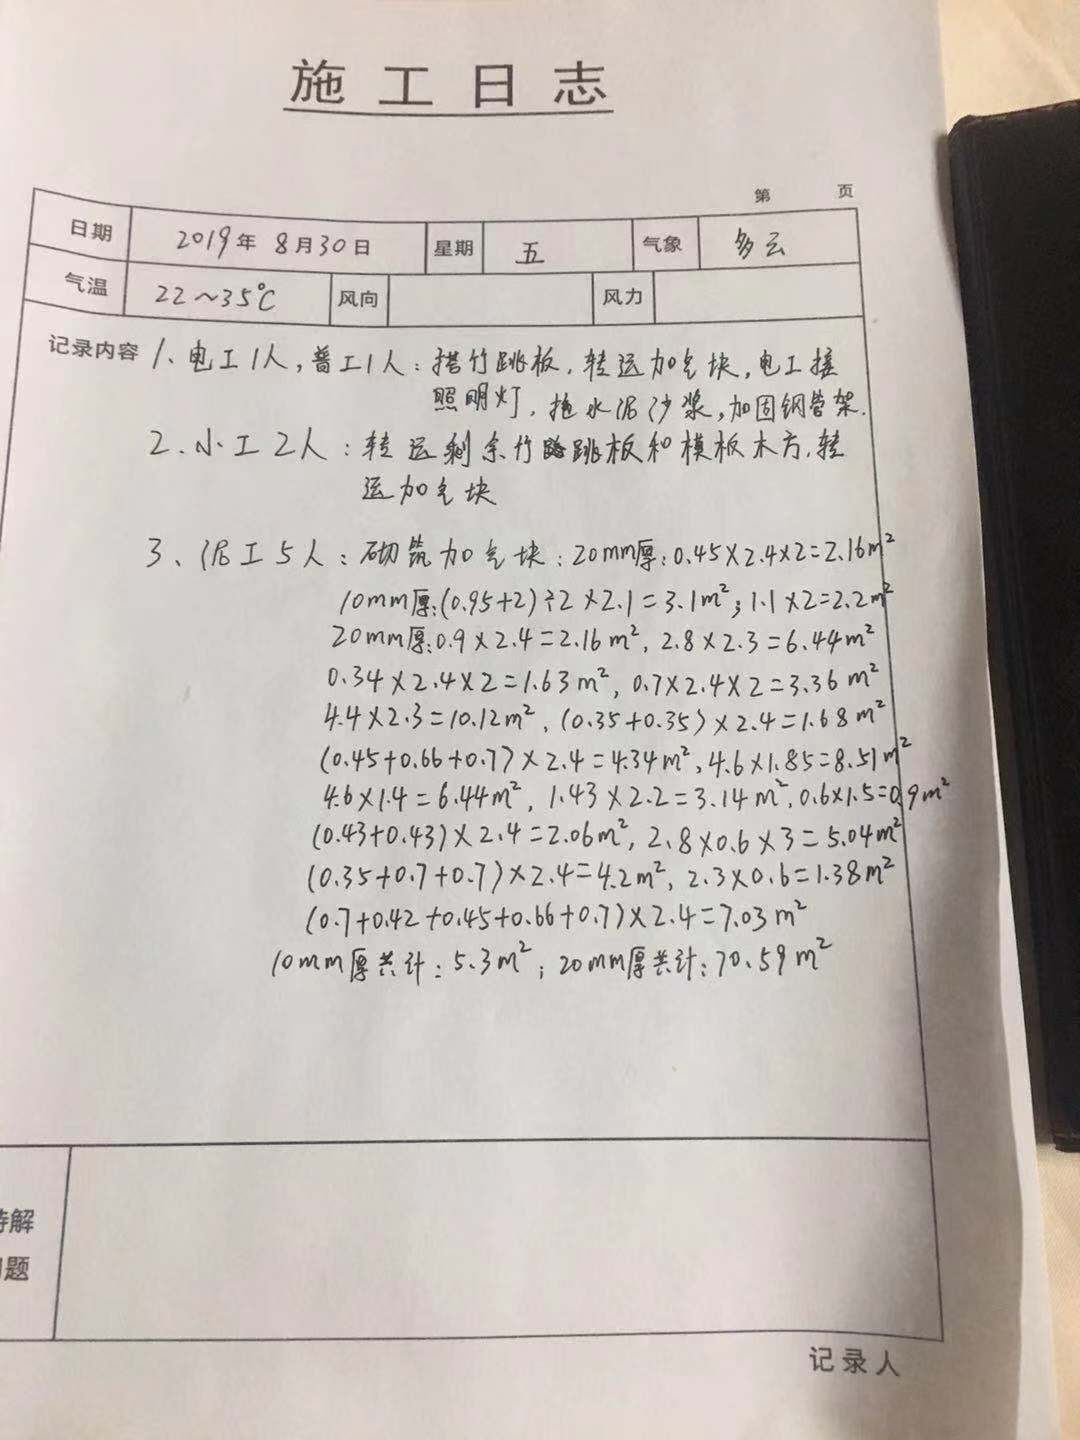 施工日志
第 页
日期 2019年8月30日 星期 五 气象 多云
气温 22~35℃ 风向 风力
记录内容 1、电工1人,普工1人:搭竹跳板,转运加气块,电工接
照明灯,拖水泥沙浆,加固钢管架.
2、小工2人:转运剩余竹跳板和模板木方,转
运加气块
3、泥工5人:砌筑加气块:20mm厚:0.45×2.4×2=2.16m²
10mm厚:(0.95+2)÷2×2.1=3.1m²;1.1×2=2.2m²
20mm厚:0.9×2.4=2.16m²,2.8×2.3=6.44m²
0.34×2.4×2=1.63m²,0.7×2.4×2=3.36m²
4.4×2.3=10.12m²,(0.35+0.35)×2.4=1.68m²
(0.45+0.66+0.7)×2.4=4.34m²,4.6×1.85=8.51m²
4.6×1.4=6.44m²,1.43×2.2=3.14m²,0.6×1.5=0.9m²
(0.43+0.43)×2.4=2.06m²,2.8×0.6×3=5.04m²
(0.35+0.7+0.7)×2.4=4.2m²,2.3×0.6=1.38m²
(0.7+0.42+0.45+0.66+0.7)×2.4=7.03m²
10mm厚共计:5.3m²;20mm厚共计:70.59m²
待解
题
记录人